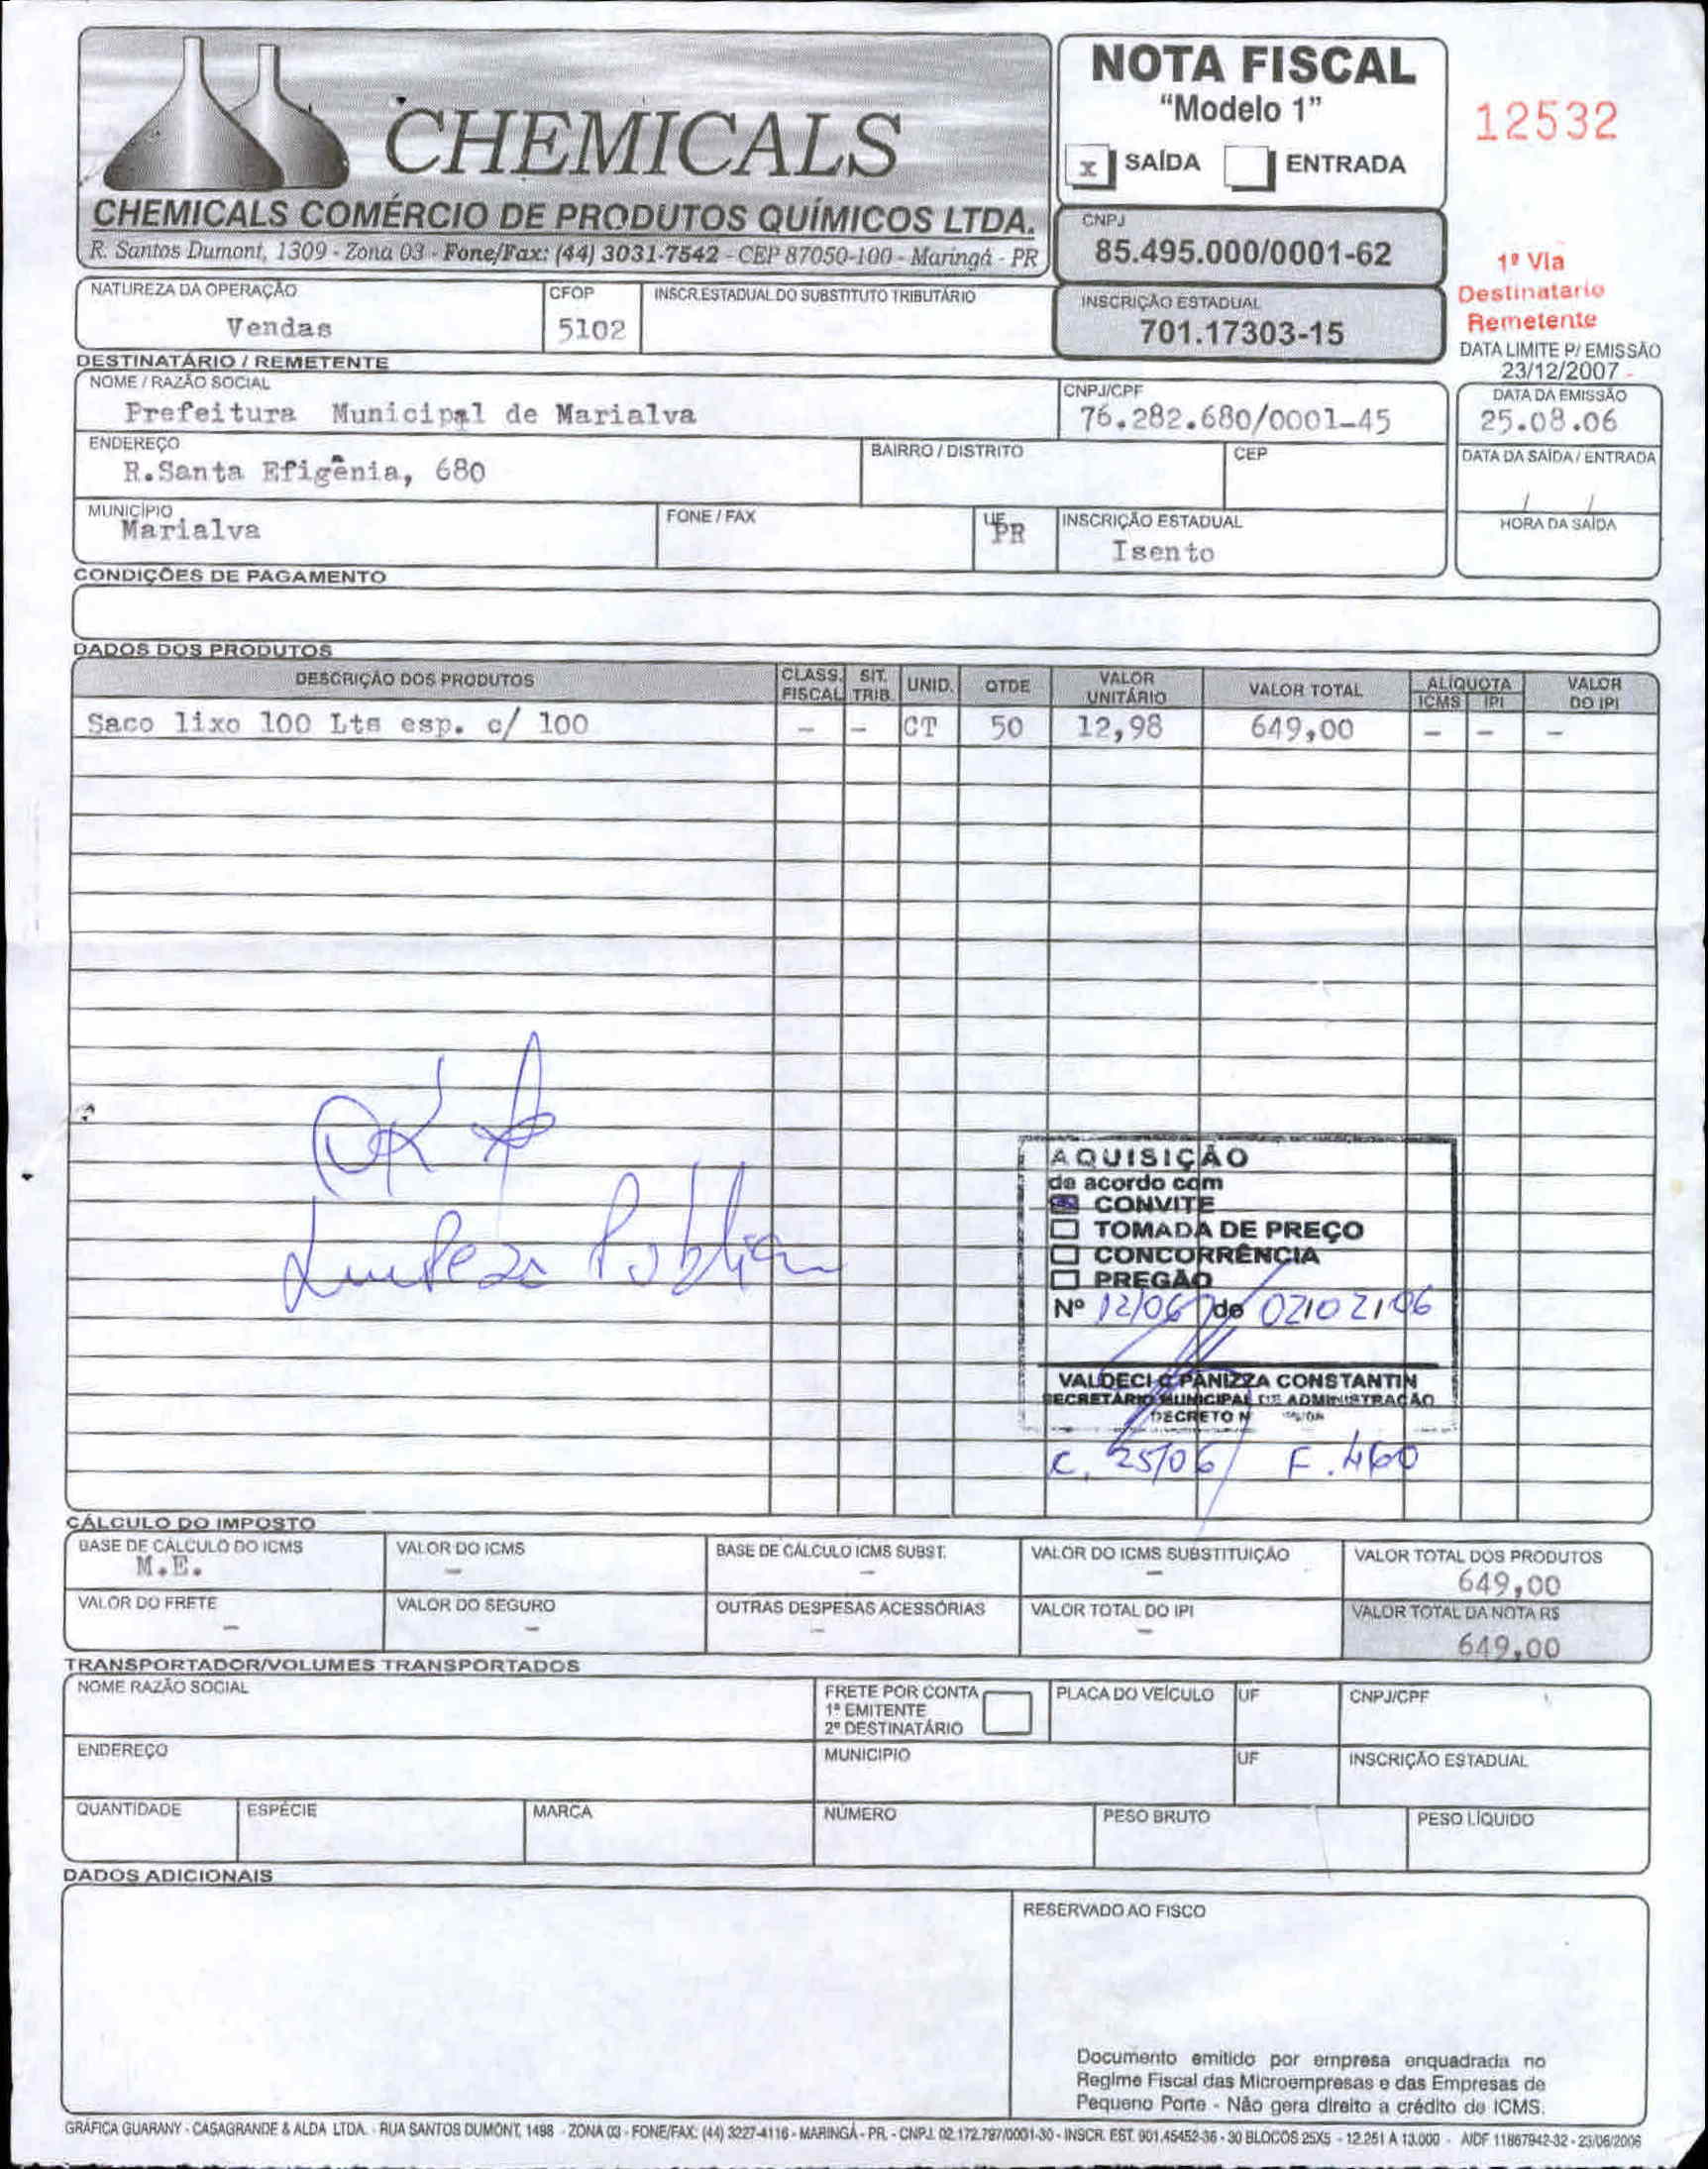 CHEMICALS
CHEMICALS COMÉRCIO DE PRODUTOS QUÍMICOS LTDA.
R. Santos Dumont, 1309 - Zona 03 - Fone/Fax: (44) 3031-7542 - CEP 87050-100 - Maringá - PR
NOTA FISCAL
"Modelo 1"
x SAÍDA ENTRADA
12532
CNPJ
85.495.000/0001-62
INSCRIÇÃO ESTADUAL
701.17303-15
1ª Via
Destinatario
Remetente
DATA LIMITE P/ EMISSÃO
23/12/2007
NATUREZA DA OPERAÇÃO CFOP INSCR.ESTADUAL DO SUBSTITUTO TRIBUTÁRIO
Vendas 5102
DESTINATÁRIO / REMETENTE
NOME / RAZÃO SOCIAL CNPJ/CPF DATA DA EMISSÃO
Prefeitura Municipal de Marialva 76.282.680/0001-45 25.08.06
ENDEREÇO BAIRRO / DISTRITO CEP DATA DA SAÍDA / ENTRADA
R.Santa Efigênia, 680 / /
MUNICÍPIO FONE / FAX UF INSCRIÇÃO ESTADUAL HORA DA SAÍDA
Marialva PR Isento
CONDIÇÕES DE PAGAMENTO
DADOS DOS PRODUTOS
DESCRIÇÃO DOS PRODUTOS CLASS. FISCAL SIT. TRIB. UNID. QTDE VALOR UNITÁRIO VALOR TOTAL ALÍQUOTA ICMS IPI VALOR DO IPI
Saco lixo 100 Lts esp. c/ 100 - - CT 50 12,98 649,00 - - -
OK
Limpeza Pública
AQUISIÇÃO
de acordo com
CONVITE
TOMADA DE PREÇO
CONCORRÊNCIA
PREGÃO
Nº 12/06 de 02/02/06
VALDECI C PANIZZA CONSTANTIN
SECRETÁRIO MUNICIPAL DE ADMINISTRAÇÃO
DECRETO N
C. 25/06 F. 460
CÁLCULO DO IMPOSTO
BASE DE CÁLCULO DO ICMS VALOR DO ICMS BASE DE CÁLCULO ICMS SUBST. VALOR DO ICMS SUBSTITUIÇÃO VALOR TOTAL DOS PRODUTOS
M.E. - - - 649,00
VALOR DO FRETE VALOR DO SEGURO OUTRAS DESPESAS ACESSÓRIAS VALOR TOTAL DO IPI VALOR TOTAL DA NOTA R$
- - - - 649,00
TRANSPORTADOR/VOLUMES TRANSPORTADOS
NOME RAZÃO SOCIAL FRETE POR CONTA PLACA DO VEÍCULO UF CNPJ/CPF
1º EMITENTE
2º DESTINATÁRIO
ENDEREÇO MUNICIPIO UF INSCRIÇÃO ESTADUAL
QUANTIDADE ESPÉCIE MARCA NÚMERO PESO BRUTO PESO LÍQUIDO
DADOS ADICIONAIS
RESERVADO AO FISCO
Documento emitido por empresa enquadrada no
Regime Fiscal das Microempresas e das Empresas de
Pequeno Porte - Não gera direito a crédito de ICMS.
GRÁFICA GUARANY - CASAGRANDE & ALDA LTDA. - RUA SANTOS DUMONT, 1498 - ZONA 03 - FONE/FAX: (44) 3227-4116 - MARINGÁ - PR. - CNPJ. 02.172.797/0001-30 - INSCR. EST. 901.45452-36 - 30 BLOCOS 25X5 - 12.251 A 13.000 - AIDF 11867942-32 - 23/06/2006